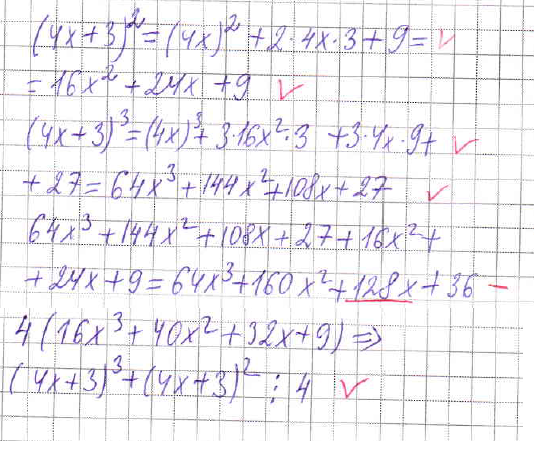 (4x+3)² = (4x)² + 2·4x·3 + 9 =
= 16x² + 24x + 9
(4x+3)³ = (4x)³ + 3·16x²·3 + 3·4x·9 +
+ 27 = 64x³ + 144x² + 108x + 27
64x³ + 144x² + 108x + 27 + 16x² +
+ 24x + 9 = 64x³ + 160x² + 128x + 36
4(16x³ + 40x² + 32x + 9) ⇒
(4x+3)³ + (4x+3)² ⋮ 4